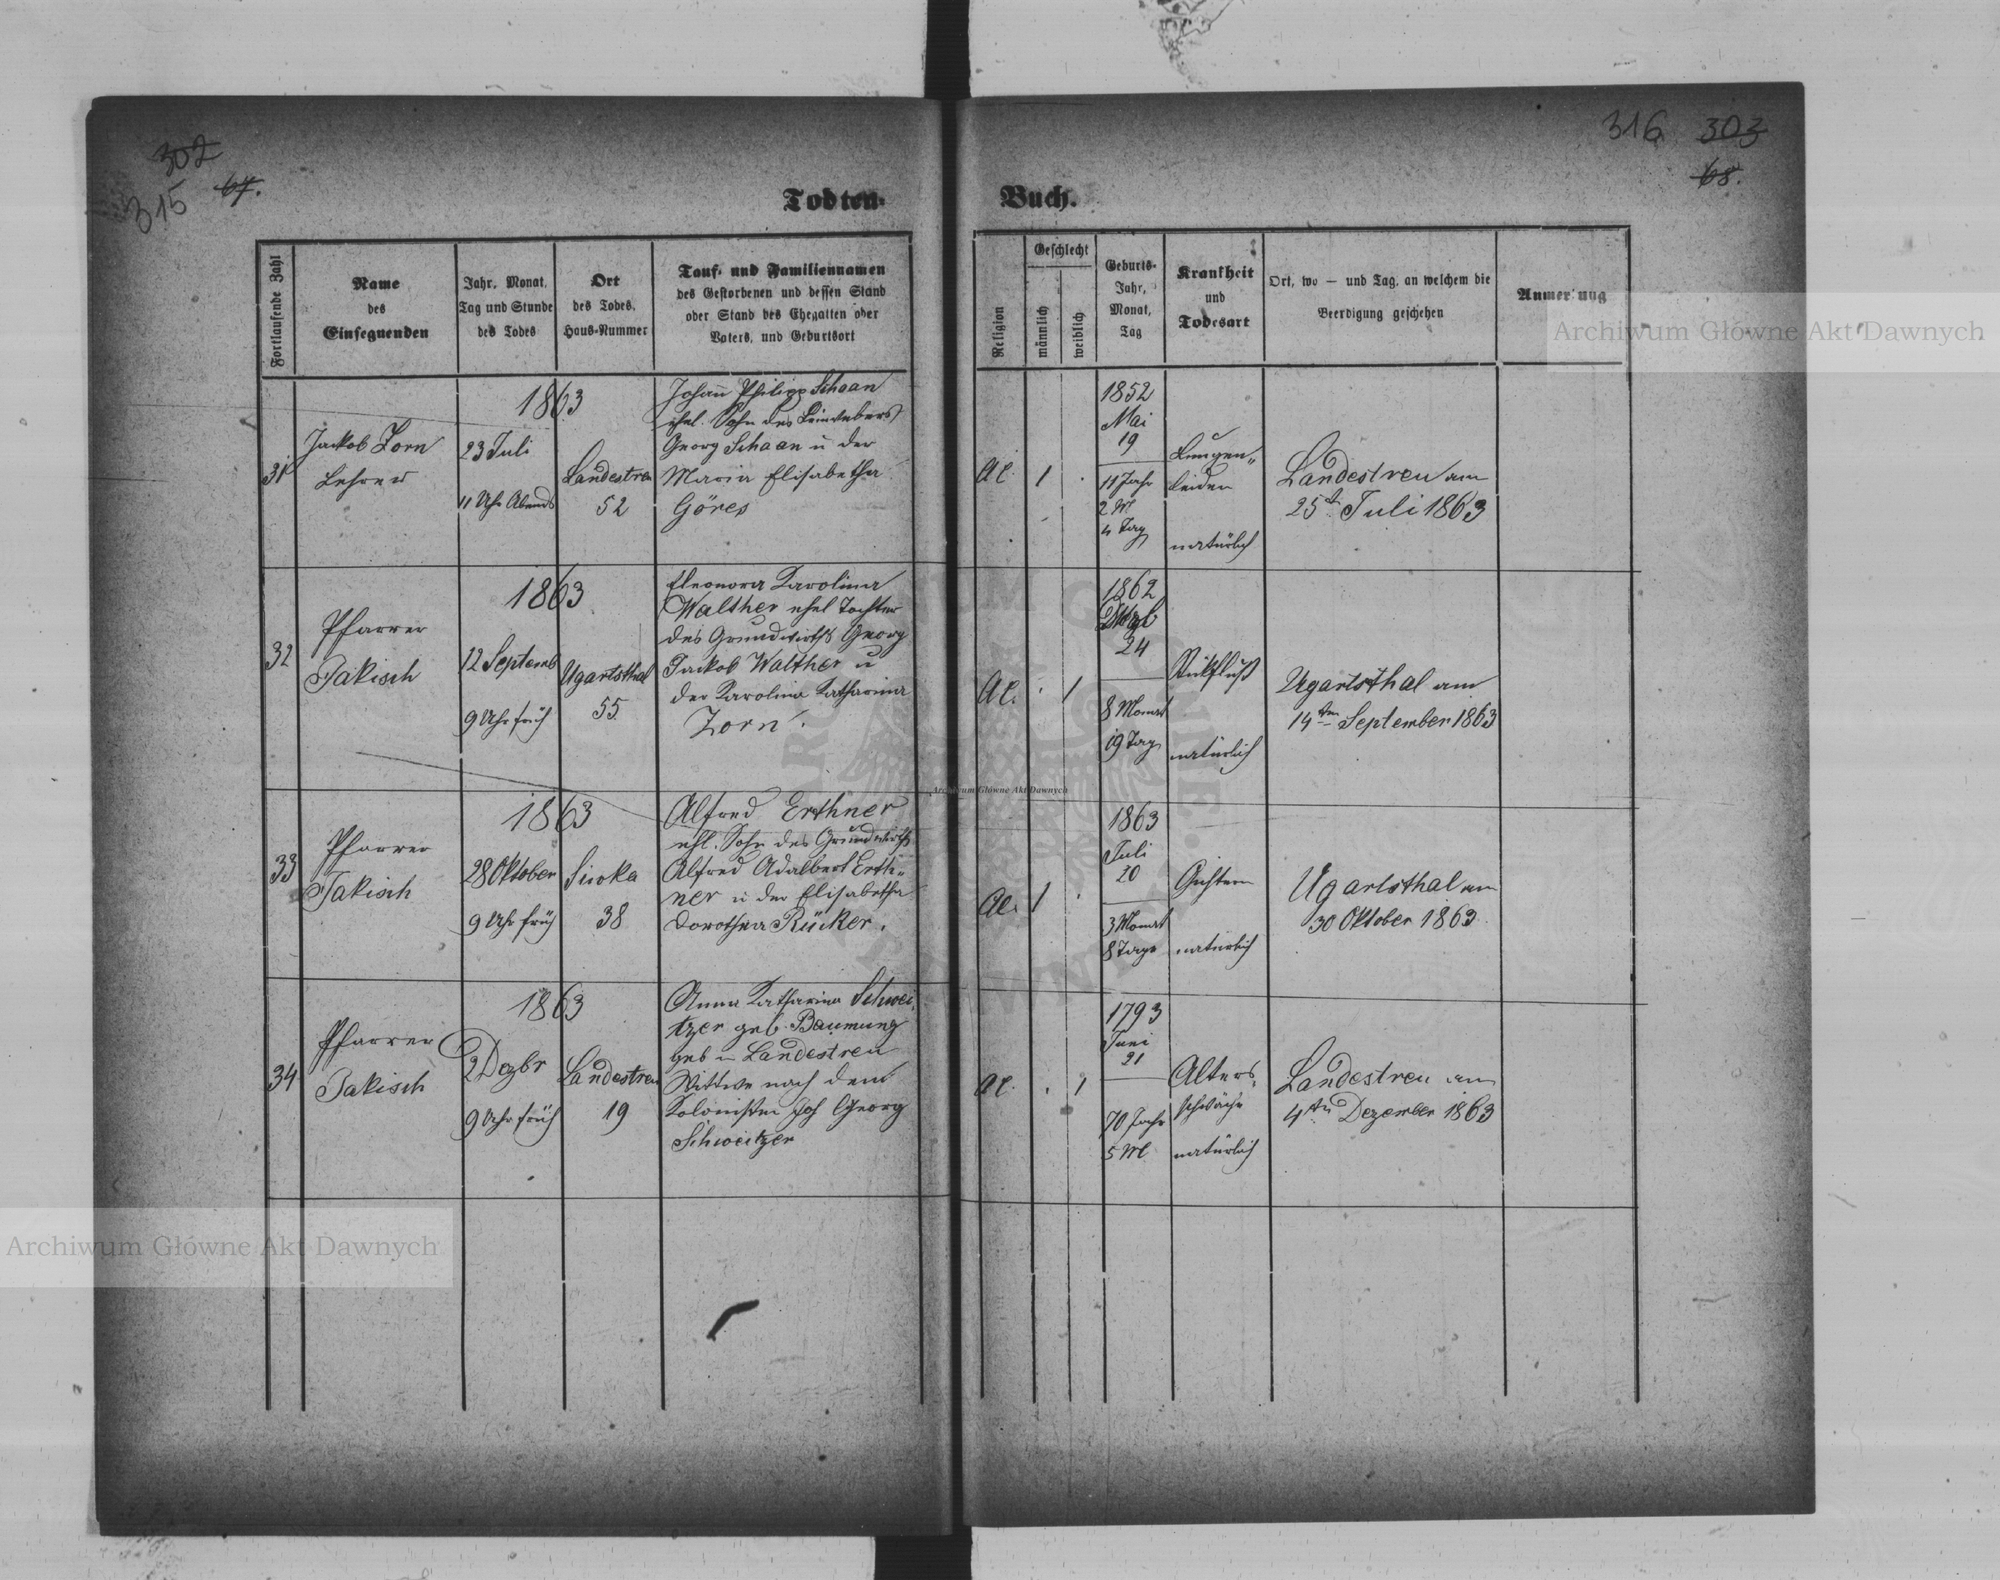 302
315 67.
316 303
68.
Todten-
Buch.
Fortlaufende Zahl
Name
des
Einsegnenden
Jahr, Monat,
Tag und Stunde
des Todes
Ort
des Todes,
Haus-Nummer
Tauf- und Familiennamen
des Gestorbenen und dessen Stand
oder Stand des Ehegatten oder
Vaters, und Geburtsort
Religion
Geschlecht
männlich
weiblich
Geburts-
Jahr,
Monat,
Tag
Krankheit
und
Todesart
Ort, wo — und Tag, an welchem die
Beerdigung geschehen
Anmerkung
31
Jackob Zorn
Lehrer
1863
23 Juli
11 Uhr Abends
Landestreu
52
Johann Philipp Schaan
ehel. Sohn des Leinwebers
Georg Schaan u der
Maria Elisabetha
Göres
AC.
1
1852
Mai
19
11 Jahr
2 M
4 Tag
Lungen-
leiden
natürlich
Landestreu am
25t Juli 1863
32
Pfarrer
Jakisch
1863
12 Septemb
9 Uhr früh
Ugartsthal
55
Eleonora Karolina
Walther ehel Tochter
des Grundwirths Georg
Jackob Walther u
der Karolina Katharina
Zorn.
AC.
1
1862
24
8 Monat
19 Tag
natürlich
Ugartsthal am
14ten September 1863
33
Pfarrer
Jakisch
1863
28 Oktober
9 Uhr früh
Siwka
38
Alfred Erthner
ehl. Sohn des Grundwirths
Alfred Adalbert Erth-
ner u der Elisabetha
Dorothea Rücker.
AC.
1
1863
Juli
20
3 Monat
8 Tage
Gichtern
natürlich
Ugartsthal am
30 Oktober 1863
34
Pfarrer
Jakisch
1863
2 Dezbr
9 Uhr früh
Landestreu
19
Anna Katharina Schwei-
tzer geb. Baumung
geb in Landestreu
Wittwe nach dem
Kolonisten Joh Georg
Schweitzer
AC.
1
1793
Juni
21
70 Jahr
5 M
Alters-
schwäche
natürlich
Landestreu am
4ten Dezember 1863
Archiwum Główne Akt Dawnych
Archiwum Główne Akt Dawnych
Archiwum Główne Akt Dawnych